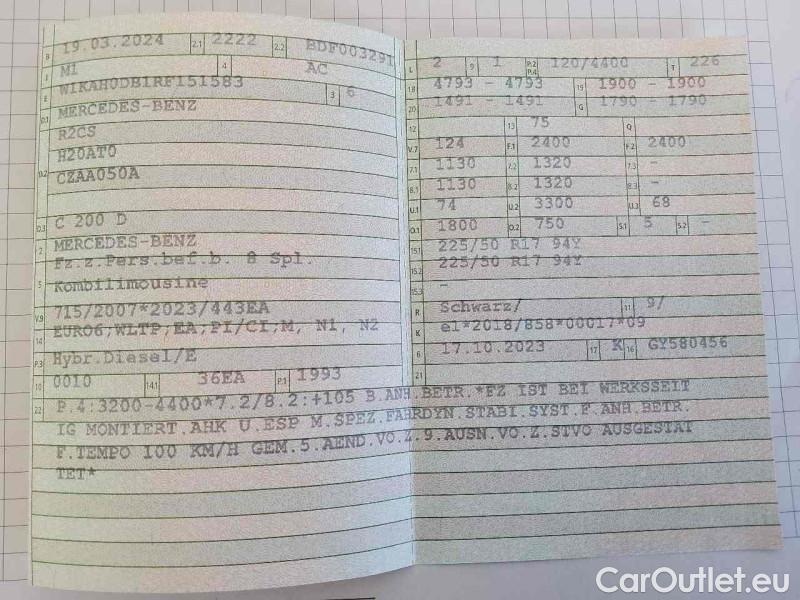 B 19.03.2024 2.1 2222 2.2 BDF003291
J M1 4 AC
E W1KAH0DB1RF151583 3 6
D.1 MERCEDES-BENZ
R2CS
D.2 H20AT0
CZAA050A
D.3 C 200 D
2 MERCEDES-BENZ
5 Fz.z.Pers.bef.b. 8 Spl.
Kombilimousine
V.9 715/2007*2023/443EA
14 EURO6;WLTP;EA;PI/CI;M, N1, N2
P.3 Hybr.Diesel/E
10 0010 14.1 36EA P.1 1993
22 P.4:3200-4400*7.2/8.2:+105 B.ANH.BETR.*FZ IST BEI WERKSSEIT
IG MONTIERT.AHK U.ESP M.SPEZ.FAHRDYN.STABI.SYST.F.ANH.BETR.
F.TEMPO 100 KM/H GEM.5.AEND.VO.Z.9.AUSN.VO.Z.STVO AUSGESTAT
TET*
L 2 9 1 P.2 P.4 120/4400 T 226
18 4793 - 4793 19 1900 - 1900
20 1491 - 1491 G 1790 - 1790
12 13 75 Q
V.7 124 F.1 2400 F.2 2400
7.1 1130 7.2 1320 7.3 -
8.1 1130 8.2 1320 8.3 -
U.1 74 U.2 3300 U.3 68
O.1 1800 O.2 750 S.1 5 S.2 -
15.1 225/50 R17 94Y
15.2 225/50 R17 94Y
15.3 -
R Schwarz/ 11 9/
K e1*2018/858*00017*09
6 17.10.2023 17 K 16 GY580456
21
CarOutlet.eu